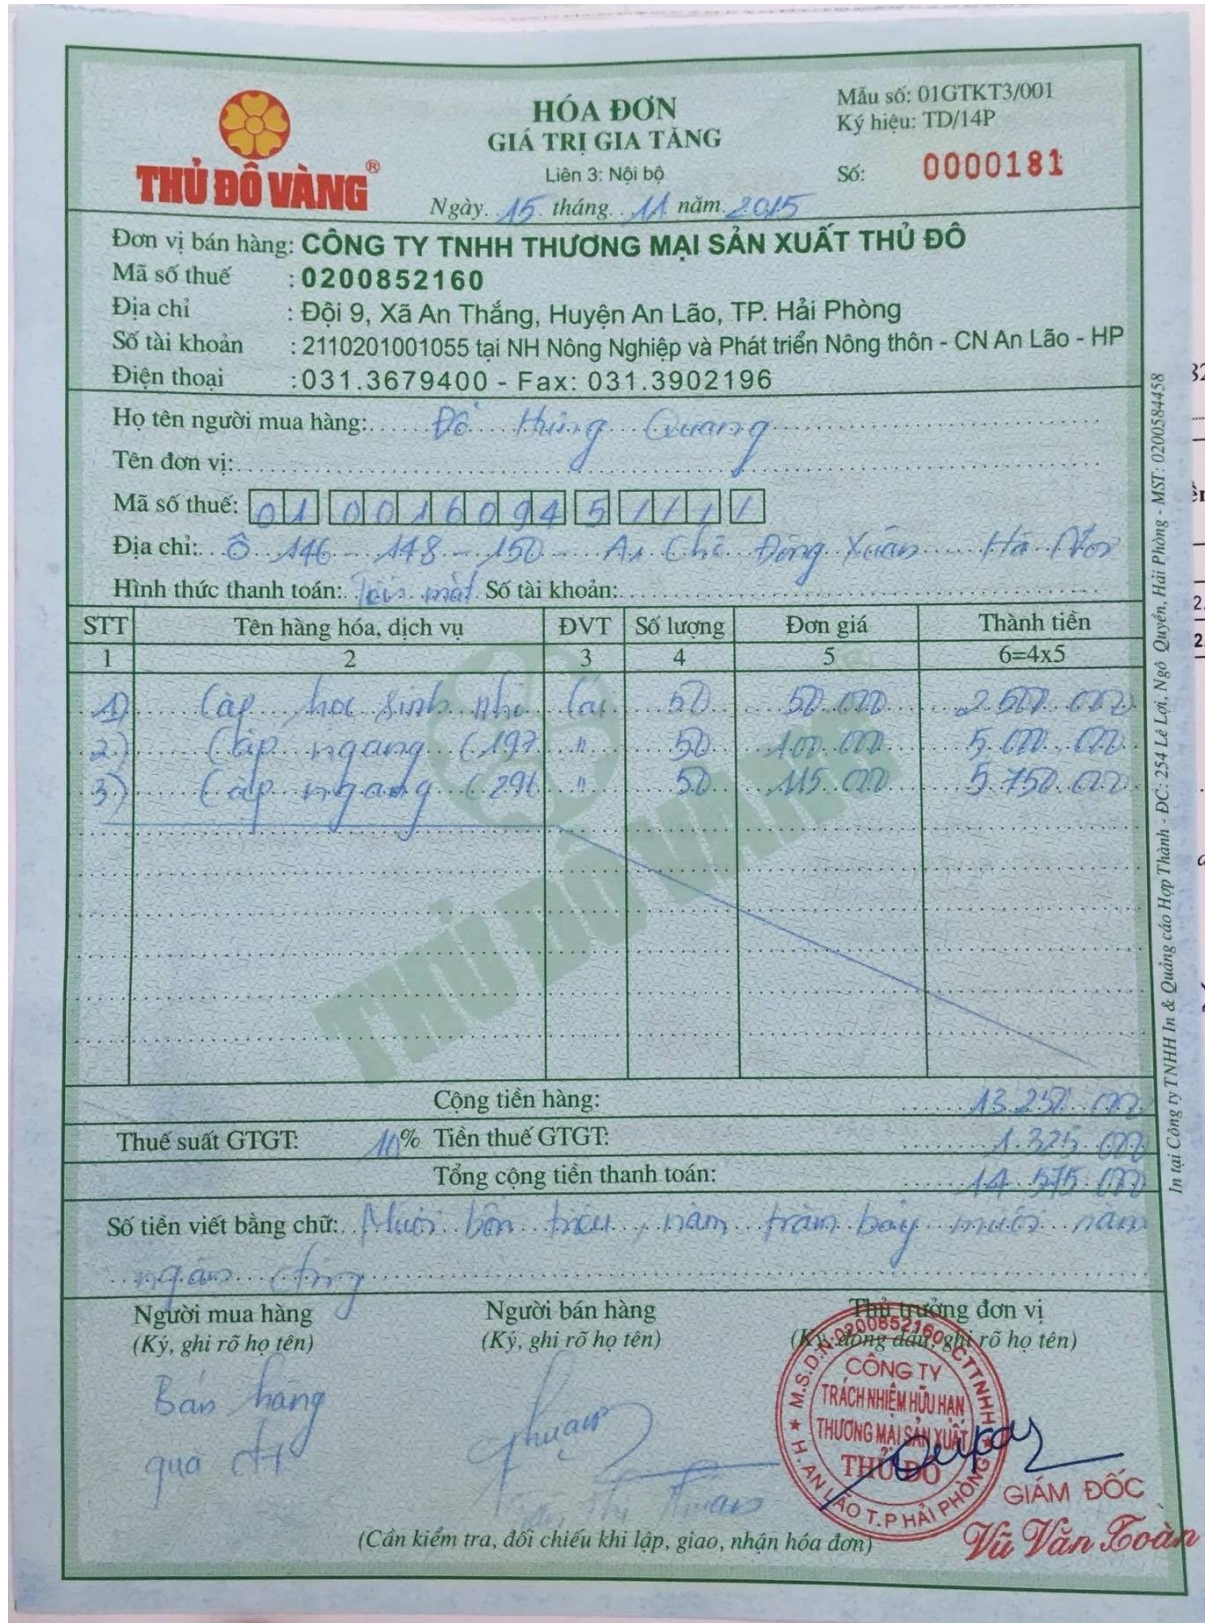 THỦ ĐÔ VÀNG®
HÓA ĐƠN
GIÁ TRỊ GIA TĂNG
Liên 3: Nội bộ
Ngày 15 tháng 11 năm 2015
Mẫu số: 01GTKT3/001
Ký hiệu: TD/14P
Số: 0000181
Đơn vị bán hàng: CÔNG TY TNHH THƯƠNG MẠI SẢN XUẤT THỦ ĐÔ
Mã số thuế : 0200852160
Địa chỉ : Đội 9, Xã An Thắng, Huyện An Lão, TP. Hải Phòng
Số tài khoản : 2110201001055 tại NH Nông Nghiệp và Phát triển Nông thôn - CN An Lão - HP
Điện thoại : 031.3679400 - Fax: 031.3902196
Họ tên người mua hàng: Đỗ Hùng Quang
Tên đơn vị:
Mã số thuế: 01 0016094 5 / / / /
Địa chỉ: Ô 146 - 148 - 150 - A1 Chợ Đồng Xuân Hà Nội
Hình thức thanh toán: Tiền mặt Số tài khoản:
STT Tên hàng hóa, dịch vụ ĐVT Số lượng Đơn giá Thành tiền
1 2 3 4 5 6=4x5
1) Cặp học sinh nhỏ Cái 50 50.000 2.500.000
2) Cặp ngang (197 " 50 100.000 5.000.000
3) Cặp ngang (296 " 50 115.000 5.750.000
THỦ ĐÔ VÀNG
Cộng tiền hàng: 13.250.000
Thuế suất GTGT: 10% Tiền thuế GTGT: 1.325.000
Tổng cộng tiền thanh toán: 14.575.000
Số tiền viết bằng chữ: Mười bốn triệu, năm trăm bảy mươi năm
ngàn đồng
Người mua hàng Người bán hàng Thủ trưởng đơn vị
(Ký, ghi rõ họ tên) (Ký, ghi rõ họ tên) (Ký, đóng dấu, ghi rõ họ tên)
Bán hàng
qua ĐT
M.S.D.N:0200852160-C.T.TNHH
CÔNG TY
TRÁCH NHIỆM HỮU HẠN
THƯƠNG MẠI SẢN XUẤT
THỦ ĐÔ
H. AN LÃO T.P HẢI PHÒNG
GIÁM ĐỐC
Vũ Văn Toàn
(Cần kiểm tra, đối chiếu khi lập, giao, nhận hóa đơn)
In tại Công ty TNHH In & Quảng cáo Hợp Thành - ĐC: 254 Lê Lợi, Ngô Quyền, Hải Phòng - MST: 0200584458